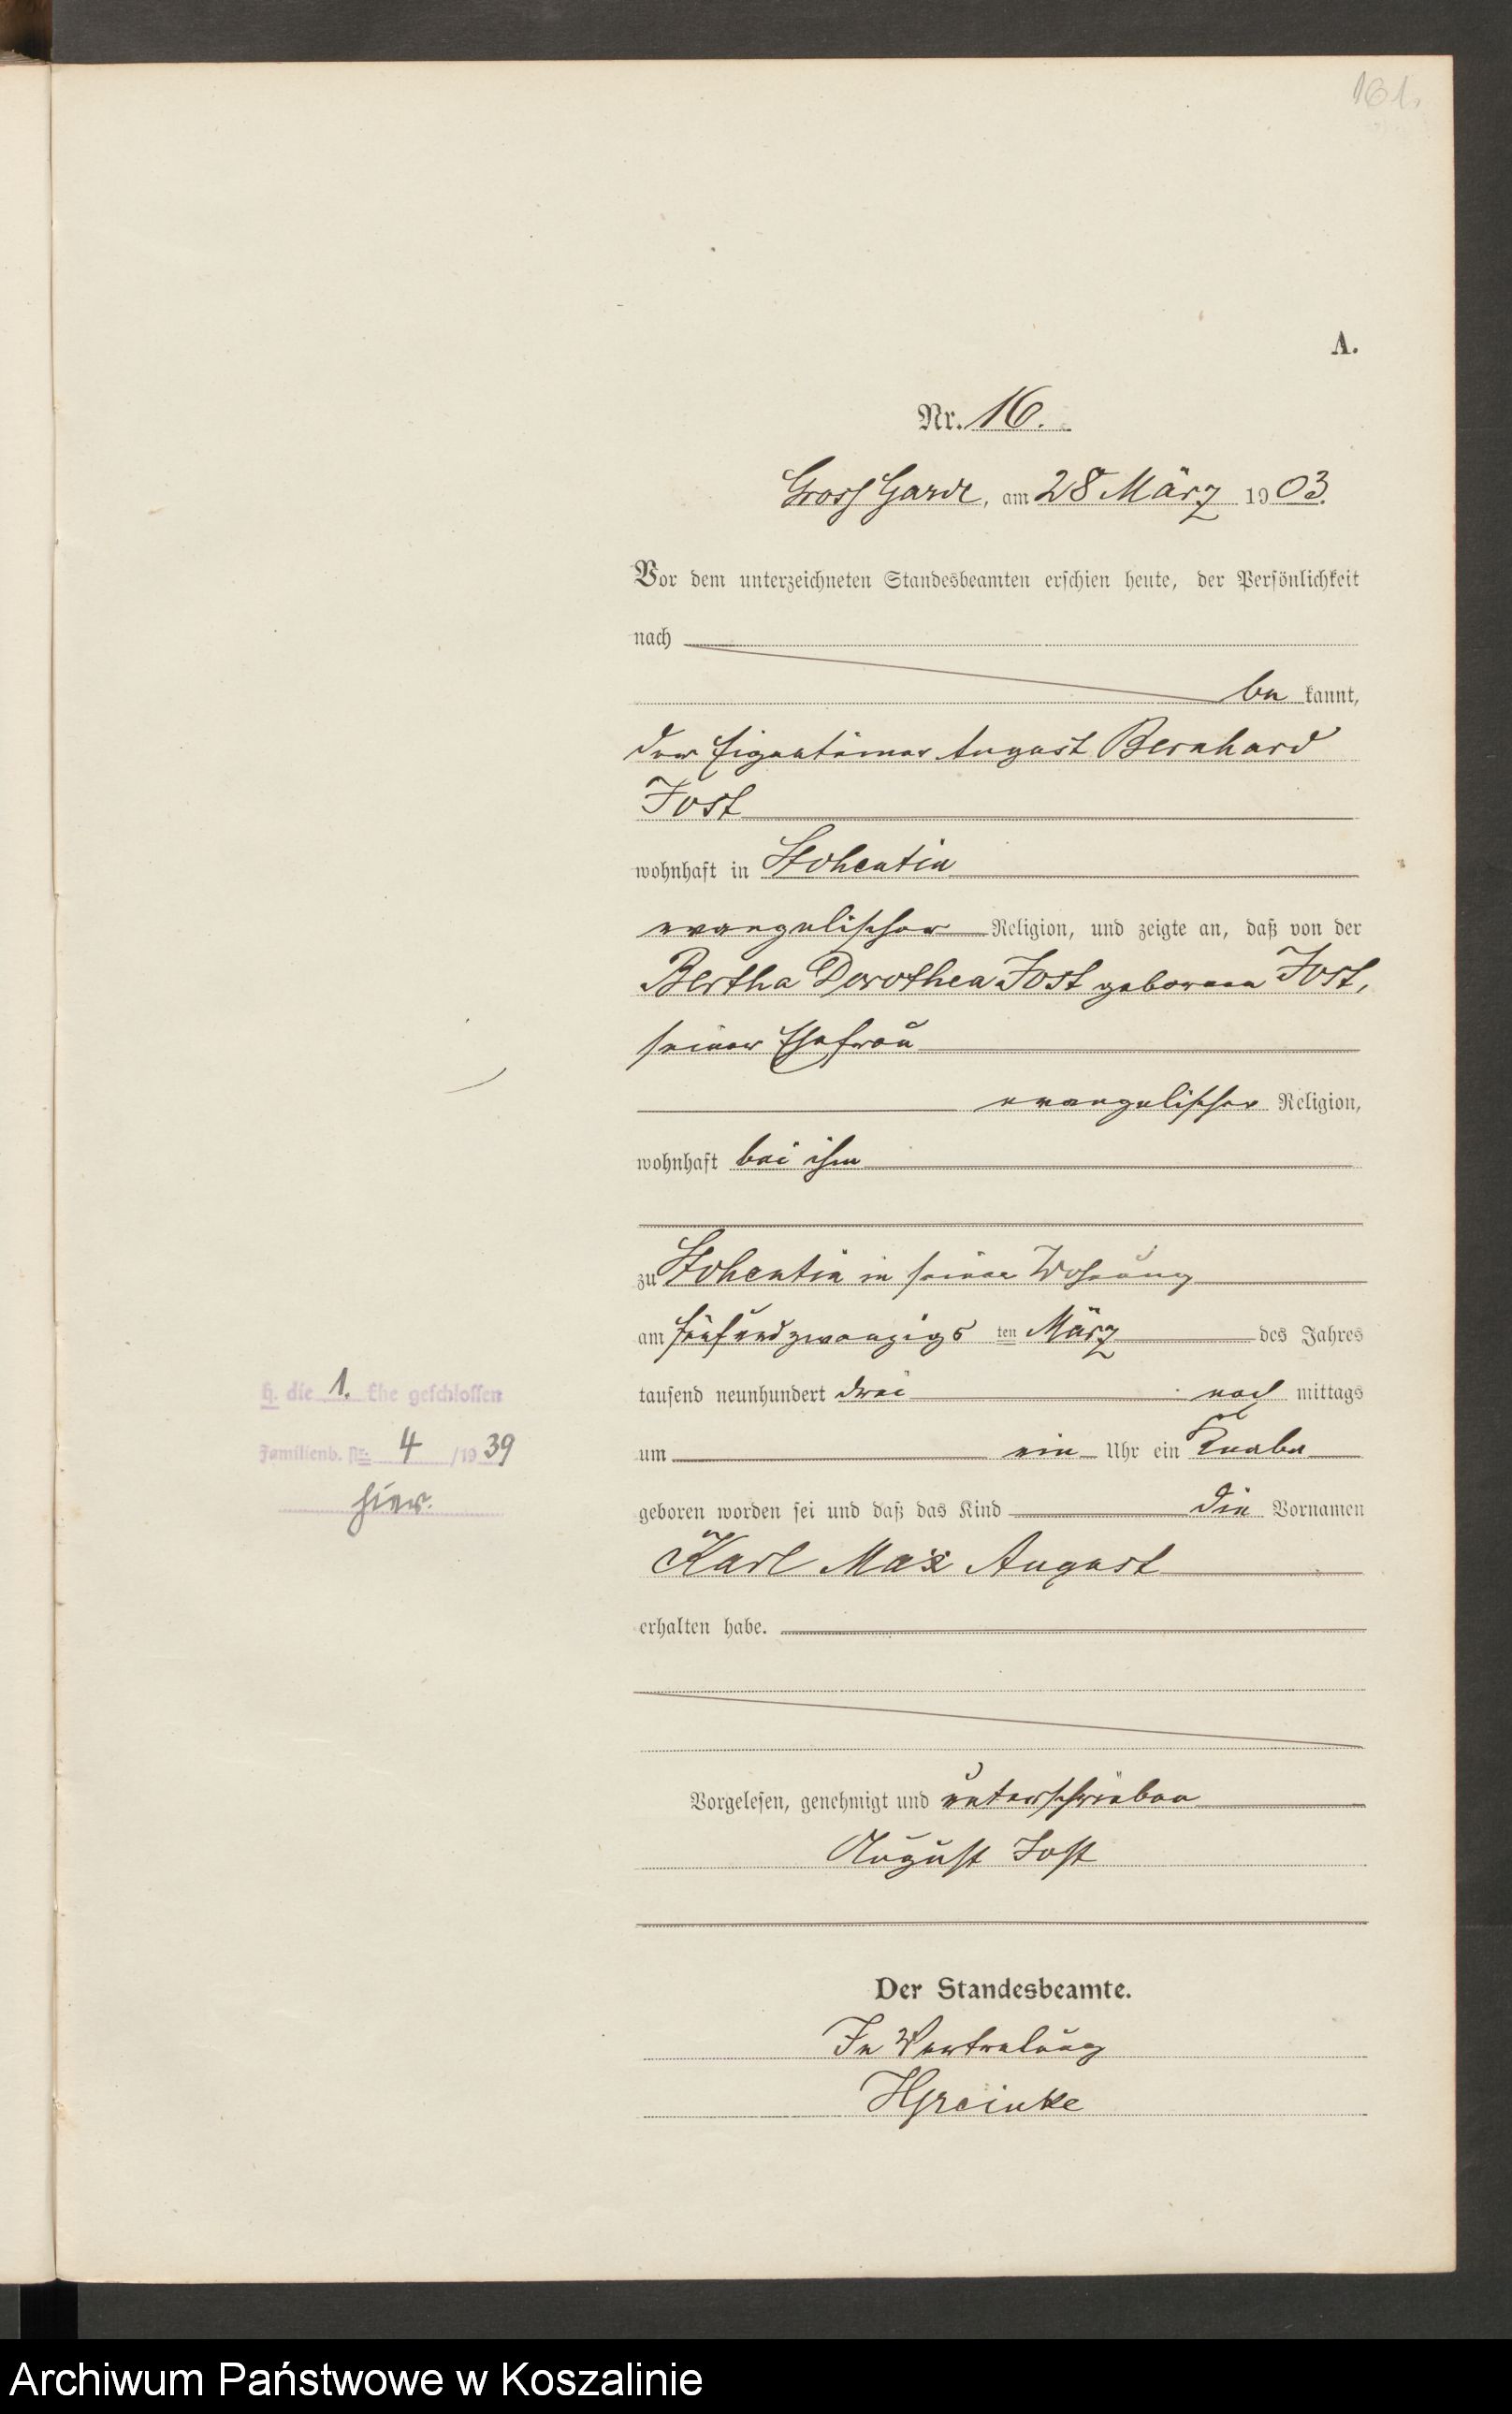 161.
A.
Nr. 16.
Gross Garde, am 28 März 1903.
Vor dem unterzeichneten Standesbeamten erschien heute, der Persönlichkeit
nach
be kannt,
der Eigentümer August Bernhard
Jost
wohnhaft in Stohentin
evangelischer Religion, und zeigte an, daß von der
Bertha Dorothea Jost geborenen Jost,
seiner Ehefrau
evangelischer Religion,
wohnhaft bei ihm
zu Stohentin in seiner Wohnung
am fünfundzwanzigs ten März des Jahres
tausend neunhundert drei nach mittags
um ein Uhr ein Knabe
geboren worden sei und daß das Kind die Vornamen
Karl Max August
erhalten habe.
Vorgelesen, genehmigt und unterschrieben
August Jost
Der Standesbeamte.
In Vertretung
HGreinke
H. die 1. Ehe geschlossen
Familienb. Nr. 4 /1939
hier.
Archiwum Państwowe w Koszalinie